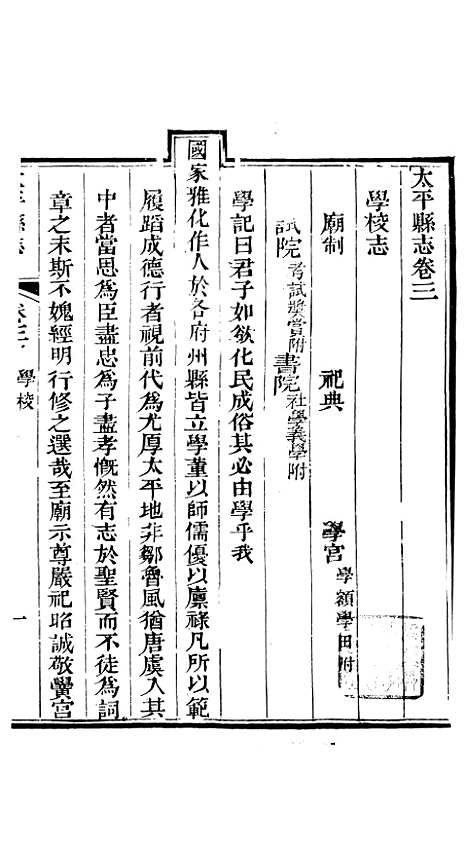 太平縣志卷三
學校志
廟制　祀典　學宮學額學田附
試院考試奬賞附　書院社學義學附
學記曰君子如欲化民成俗其必由學乎我
國家雅化作人於各府州縣皆立學董以師儒優以廪祿凡所以範
履蹈成德行者視前代為尤厚太平地非鄒魯風猶唐虞入其
中者當思為臣盡忠為子盡孝慨然有志於聖賢而不徒為詞
章之末斯不媿經明行修之選哉至廟示尊嚴祀昭誠敬黌宮
太平縣志　卷三　學校　一